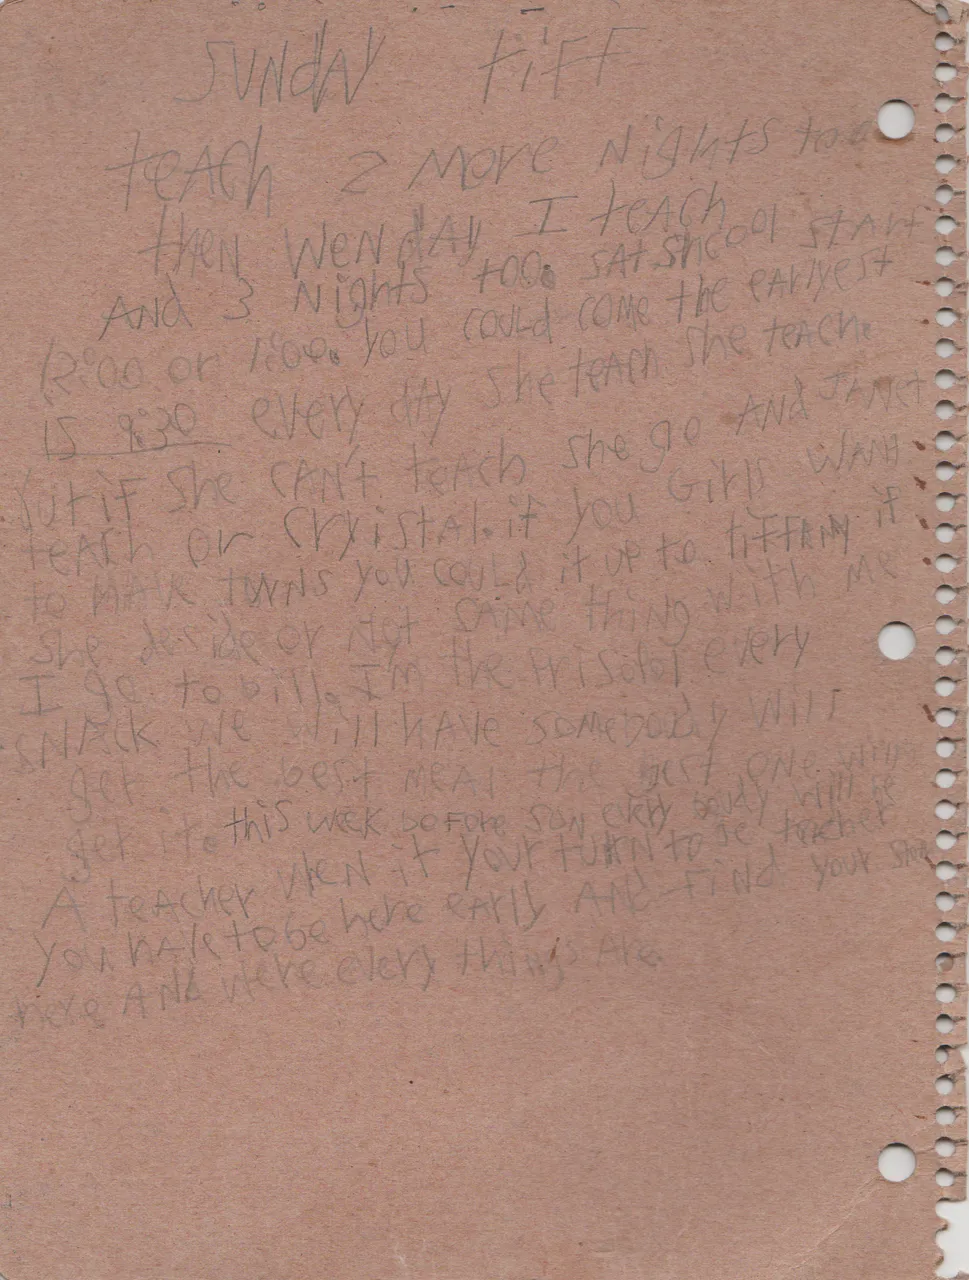 SUNdAY tiFF
teAch 2 MoRE Nights
then WENdAy I teAch
ANd 3 Nights too. SAt.shcool stARt
12:00 or 1:00. you could come the EARlyest
is 9:30 every dAy She teach She teach.
but if She CAN't teach She go ANd JANet
teach or CRyistAl. if you Girls WANt
to MAk turns you could it up to tiffANy if
She decide or Not SAME thing With Me
I go to bill. I'm the every
SNACk we will hAve someboudy will
get the best meAl the best one will
get it. this week before SoN every boudy will be
A teAcher wen it your tuRN to be teacher
you hAve to be here eArly ANd Find your
here ANd were every things Are